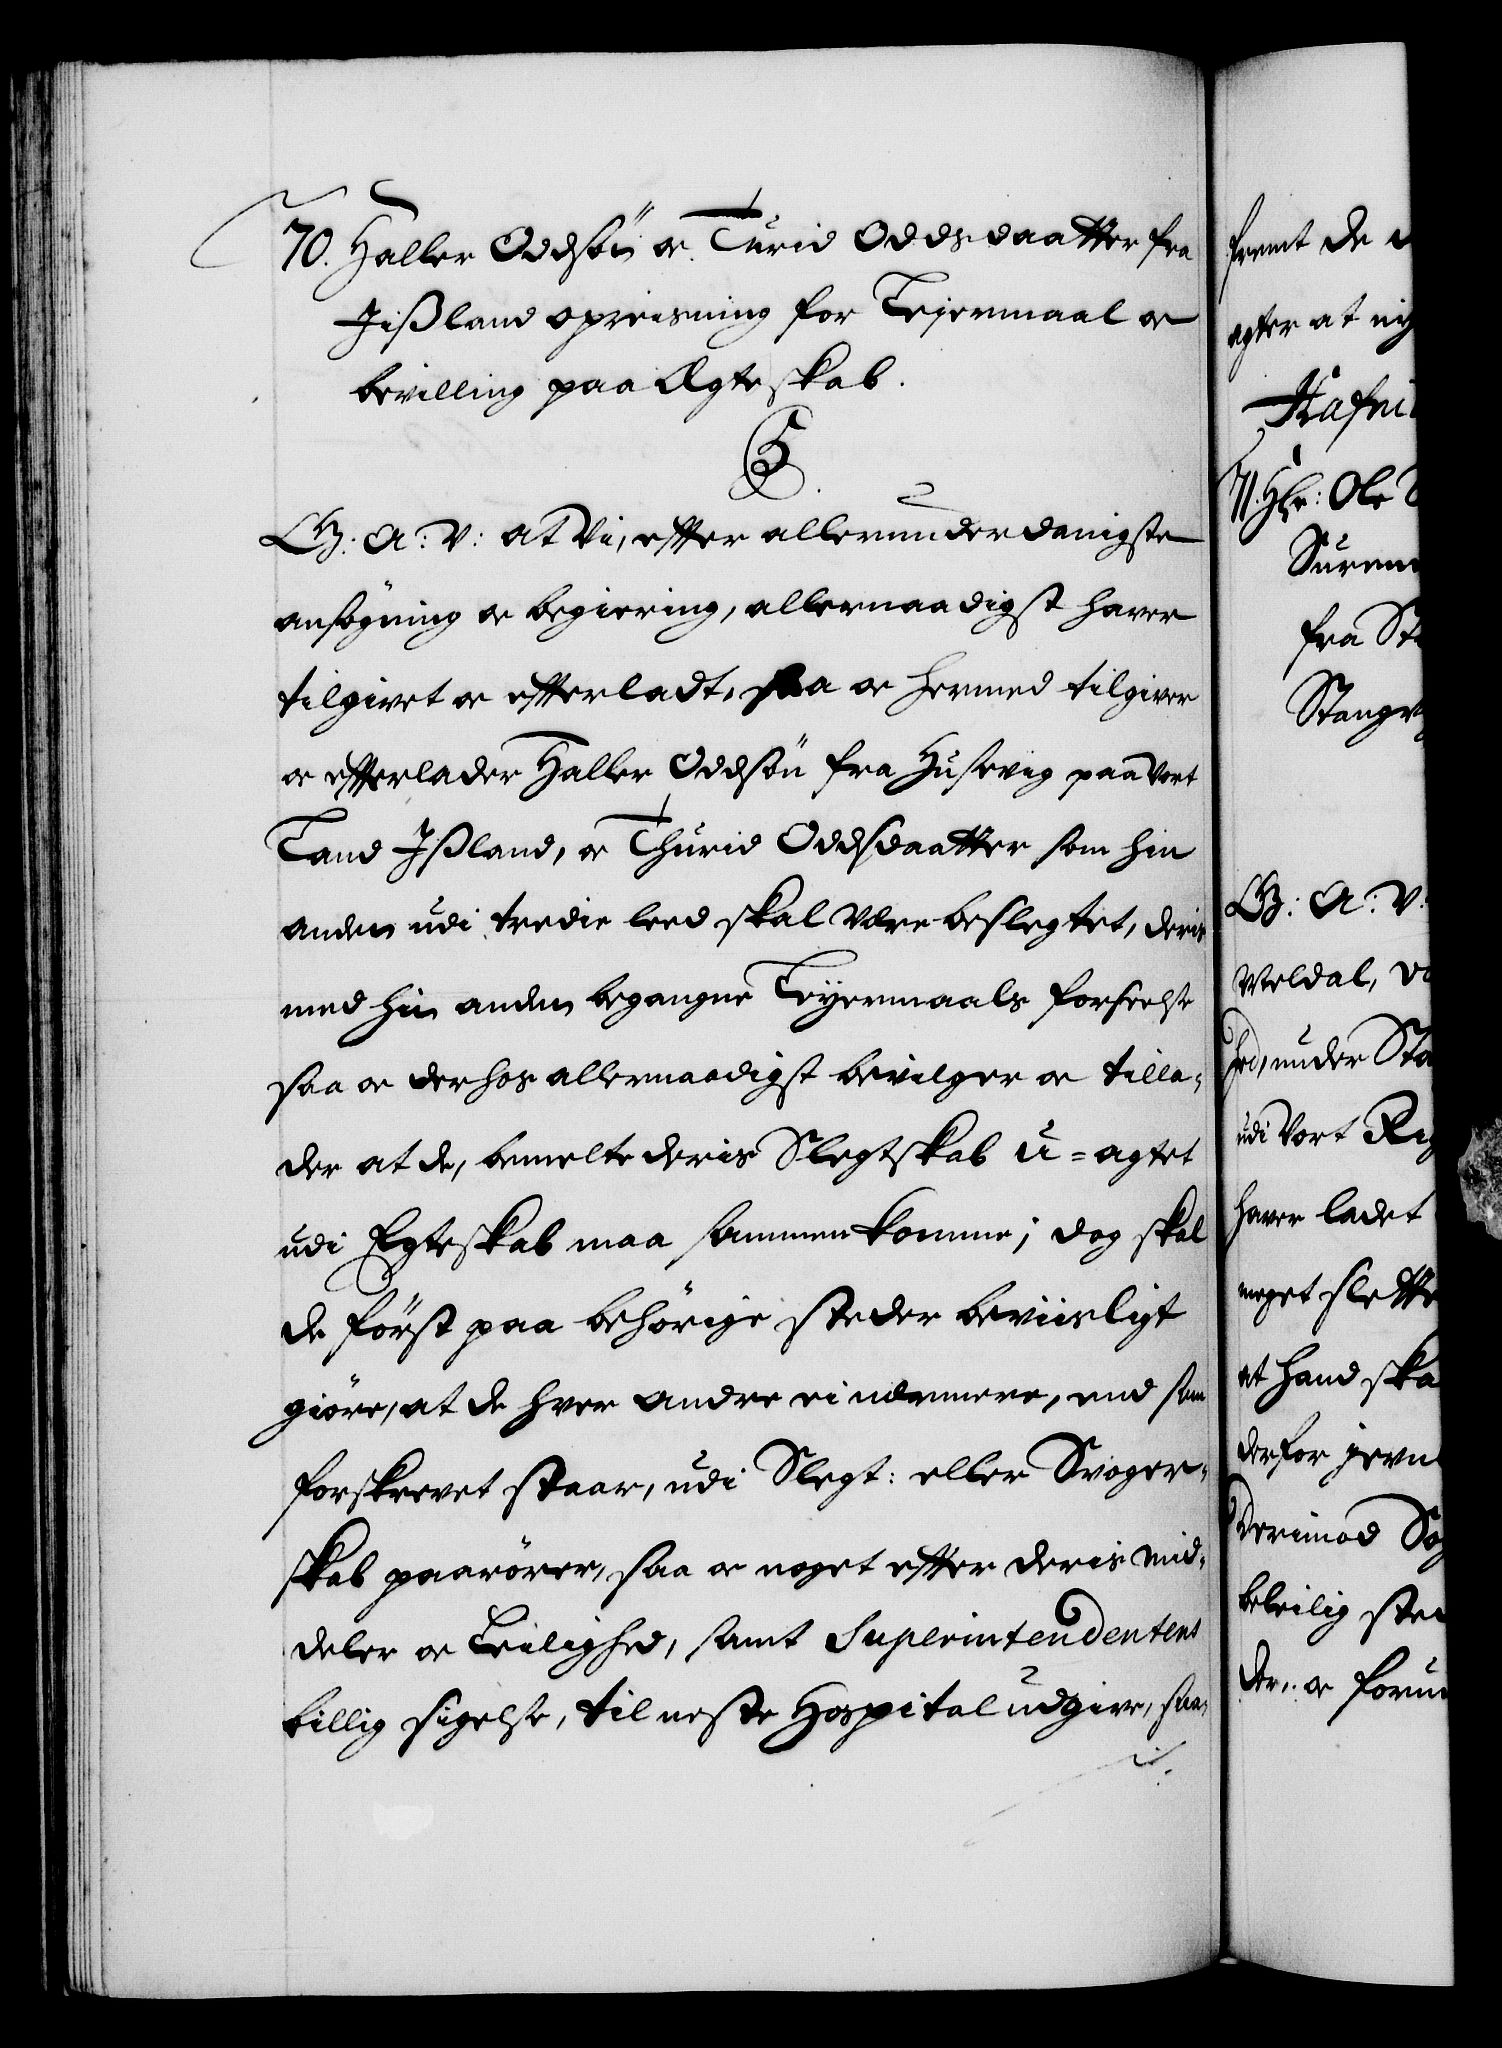 70. Haller Oddsön oc Turid Oddsdaatter fra
Jißland opreisning for Lejermaal oc
bevilling paa Ægteskab.
G. A: V: at Vi, efter allerunderdanigste
ansøgning oc begiering, allernaadigst haver
tilgivet oc efterladt, saa oc hermed tilgiver
oc efterlader Haller Oddsön fra Husevig paa Vort
Land Ißland, oc Thurid Oddsdaatter som hin
anden udi tredie leed skal være beslegtet, deris
med hin anden begangne Leyermaals forseelse
saa oc derhos allernaadigst bevilger oc tilla-
der at de, bemelte deris Slegtskab u-agtet
udi Egteskab maa sammenkomme; dog skal
de först paa behörige steder beviisligt
giöre, at de hver andre ei nærmere, end som
forskrevet staar, udi Slegt: eller Svoger-
skab paarörer, saa oc noget efter deris mid-
deler oc Leilighed, samt Superintendentens
billig sigelse, til neste Hospital udgive, saa-
fremt de
agter at
Hafni
71. Hr: Ole
Suren
fra St
Stangv
G: A: V:
Meldal,
under Sta
udi Vort
haver ladet
meget slette
at hand ska
derfor jevn
Derimod
beleilig ste
der, oc